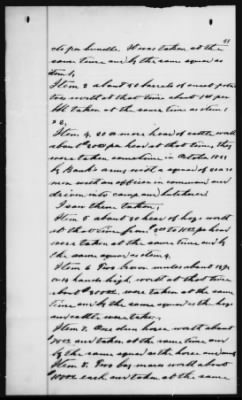 cts per bundle. It was taken at the
same time and by the same squad as
item 1,
Item 3 about 20 barrels of sweet pota
toes worth at that time about per
bbl taken at the same time as items 1
& 2,
Item 4, 20 or more head of cattle worth
about per head at that time, they
were taken sometime in October 1863
by Banks army with a squad of
men with an officer in command and
driven into camp and butchered
I saw them taken;
Item 5 about 30 head of hogs worth
at that time from to per head
were taken at the same time and by
the same squad as item 4.
Item 6 Two brown mules about
hands high, worth at that time
about each taken at the same
time and by the same squad as the hogs
and cattle were taken,
Item 7. One dun horse worth about
and taken at the same time and
by the same squad as the horse and
Item 8. Two bay mares worth about
each and taken at the same